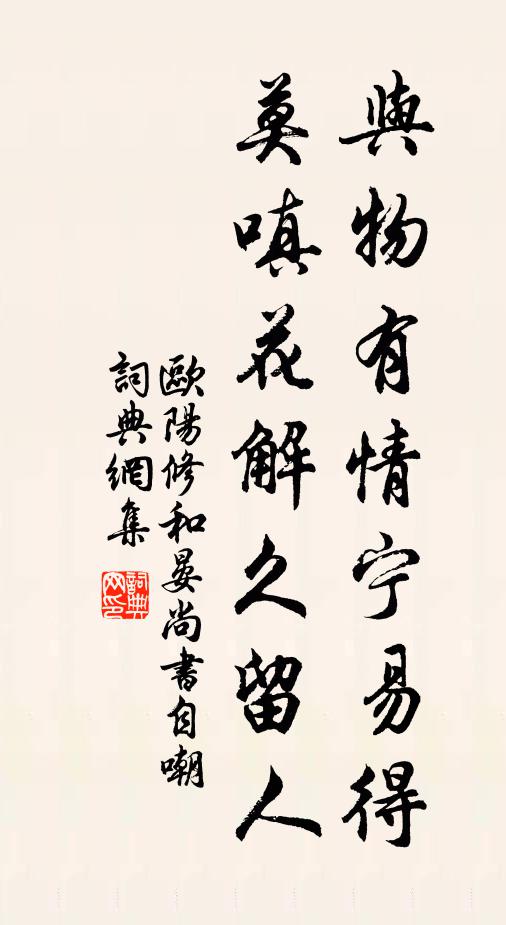 與物有情宁易得
莫嗔花解久留人
歐陽修和晏尚書自嘲
詞典網集
詞典網印